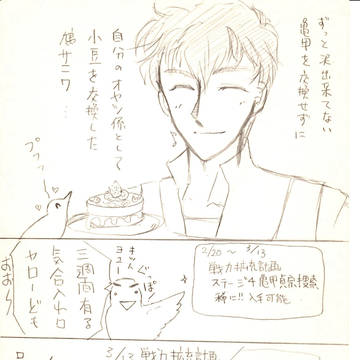 ずっと
出来てない
亀甲を交換せずに
自分のオヤツ係として
小豆を交換した
鳩サニワ…
2/20～3/13
戦力拡充計画
ステージ4 亀甲貞宗捜索
稀に!! 入手可能
ぐっぽ!
三週間有る
気合入れロ
ヤローども
おお～
3/13 戦力拡充計画